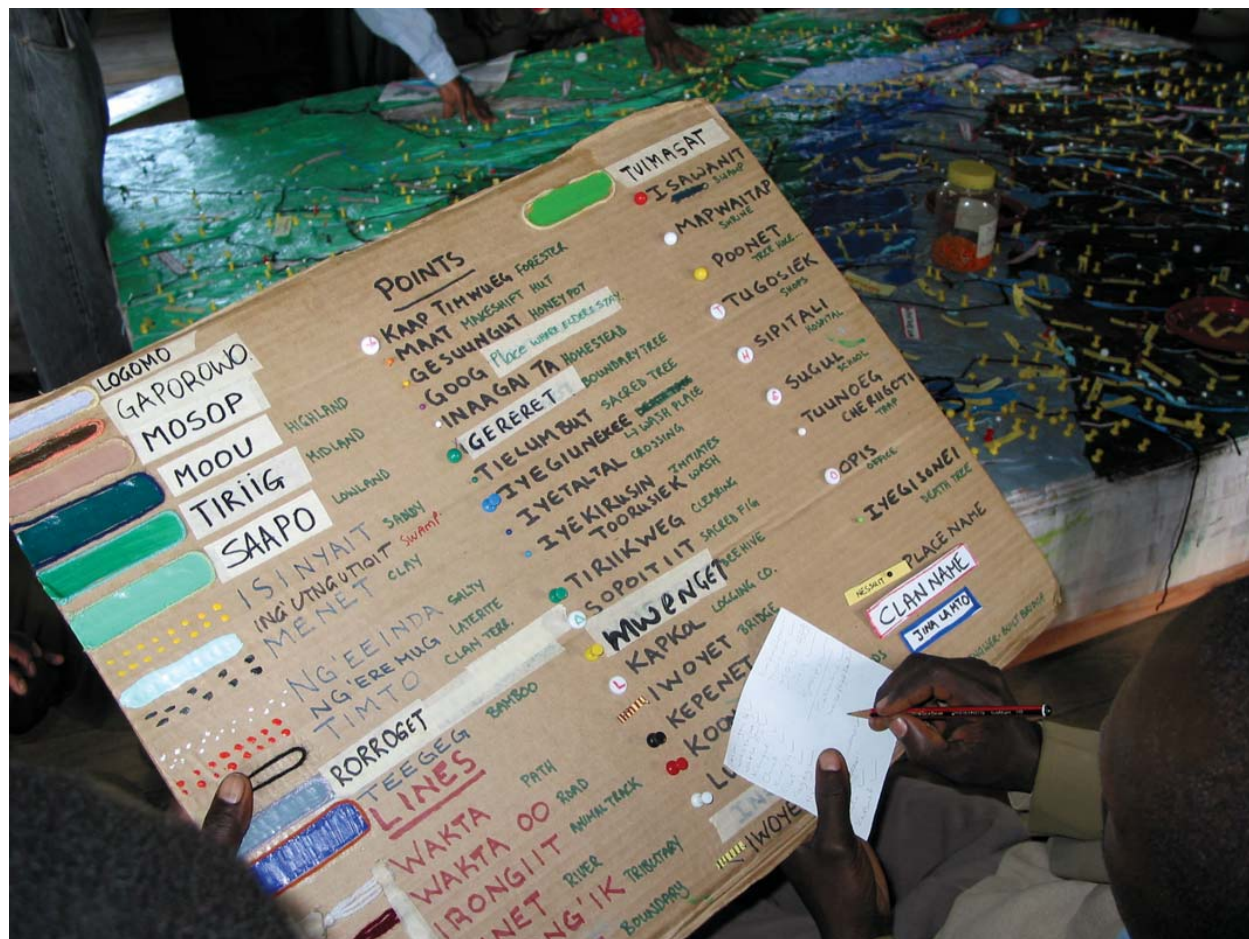 LOGOMO
GAPOROWO.
MOSOP HIGHLAND
MOOU MIDLAND
TIRIIG LOWLAND
SAAPO
ISINYAIT SANDY
ING'UNGUTIOIT SWAMP.
MENET CLAY
NG'EEINDA SALTY
NG'EREMUG LATERITE
TIMTO CLAN TERR.
RORROGET
TEEGEG BAMBOO
LINES
WAKTA PATH
WAKTA OO ROAD
IRONGIIT ANIMAL TRACK
NET RIVER
NG'IK TRIBUTARY
BOUNDARY
POINTS
KAAP TIMWUEG FORESTER
MAAT MAKESHIFT HUT
GESUUNGUT HONEY POT
GOOG Place WHERE ELDERS STAY.
INAAGAI TA HOMESTEAD
IGERERET BOUNDARY TREE
TIELUMBUT SACRED TREE
IYEGIUNEKEE WASH PLACE
IYETALTAL CROSSING
IYEKIRUSIN INITIATES
TOORUSIEK WASH
TIRIIKWEG CLEARING
SOPOITIIT SACRED FIG
MWENGET BEEHIVE
L KAPKOL LOGGING CO.
IWOYET BRIDGE
KEPENET
KOO
IWOYE
TULMASAT
ISAWANIT SWAMP
MAPWAITAP
SHRINE
POONET
TREE HOLE
T TUGOSIEK
SHOPS
H SIPITALI
HOSPITAL
SUGUL
SCHOOL
TUUNOEG
CHERUGOTI
TRAP
O OPIS
OFFICE
IYEGISONEI
DEATH TREE
NESSUIT PLACE NAME
CLAN NAME
JINA LA MTO
BUILT BRIDGE